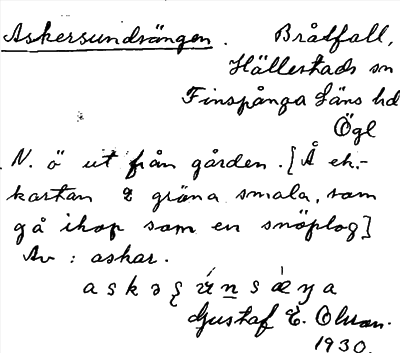 Askersundsängen. Bråtfall,
Hällestads sn
Finspånga Läns hd
Ögl
N. ö ut från gården. [Å ek.-
kartan 2 gröna smala, som
gå ihop som en snöplog]
Av: askar.
Gustaf E. Olsson.
1930.